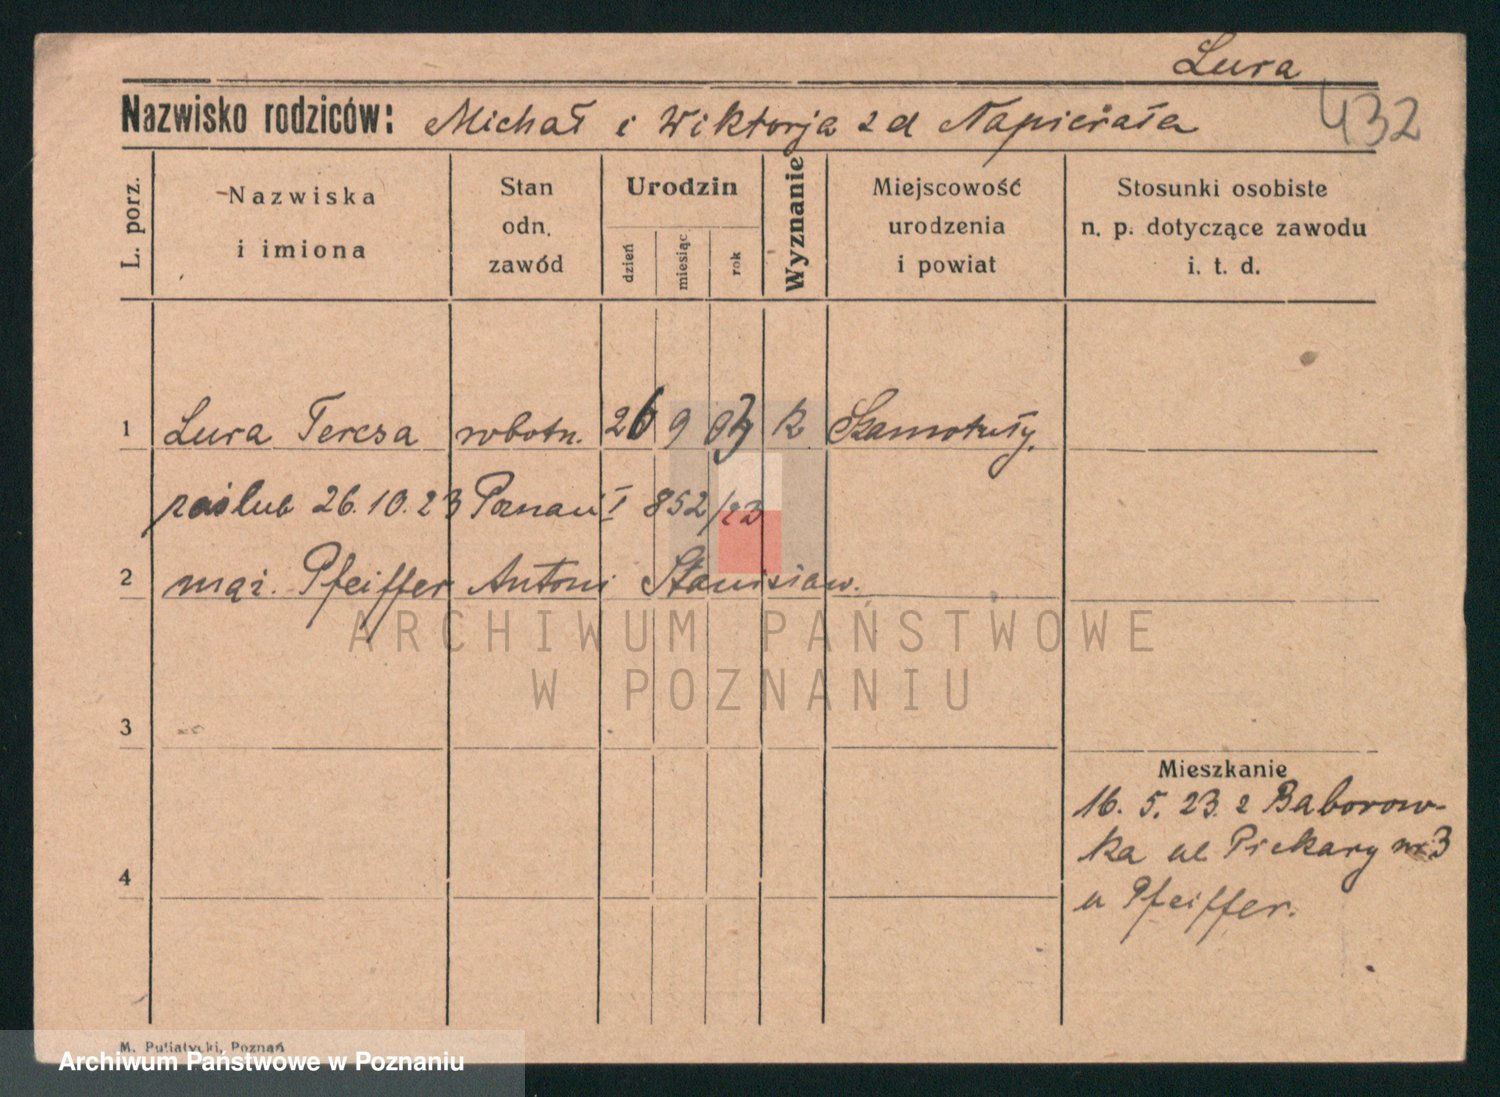 Lura
432
Nazwisko rodziców: Michał i Wiktorja z d Napierała
L. porz.
Nazwiska i imiona
Stan odn. zawód
Urodzin
dzień
miesiąc
rok
Wyznanie
Miejscowość urodzenia i powiat
Stosunki osobiste n. p. dotyczące zawodu i. t. d.
1 Lura Teresa robotn. 26 9 03 K Szamotuły.
zaślub 26.10.23 Poznań I 852/23
2 mąż. Pfeiffer Antoni Stanisław.
3
Mieszkanie
16. 5. 23. z Baborow-
ka ul Piekary nr 3
4
u Pfeiffer.
M. Putiatycki, Poznań
ARCHIWUM PAŃSTWOWE
W POZNANIU
Archiwum Państwowe w Poznaniu